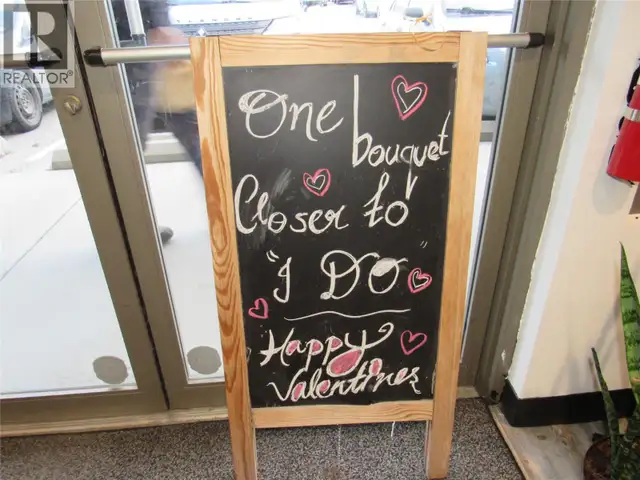 REALTOR®
One bouquet
Closer to
"I DO"
Happy
Valentines